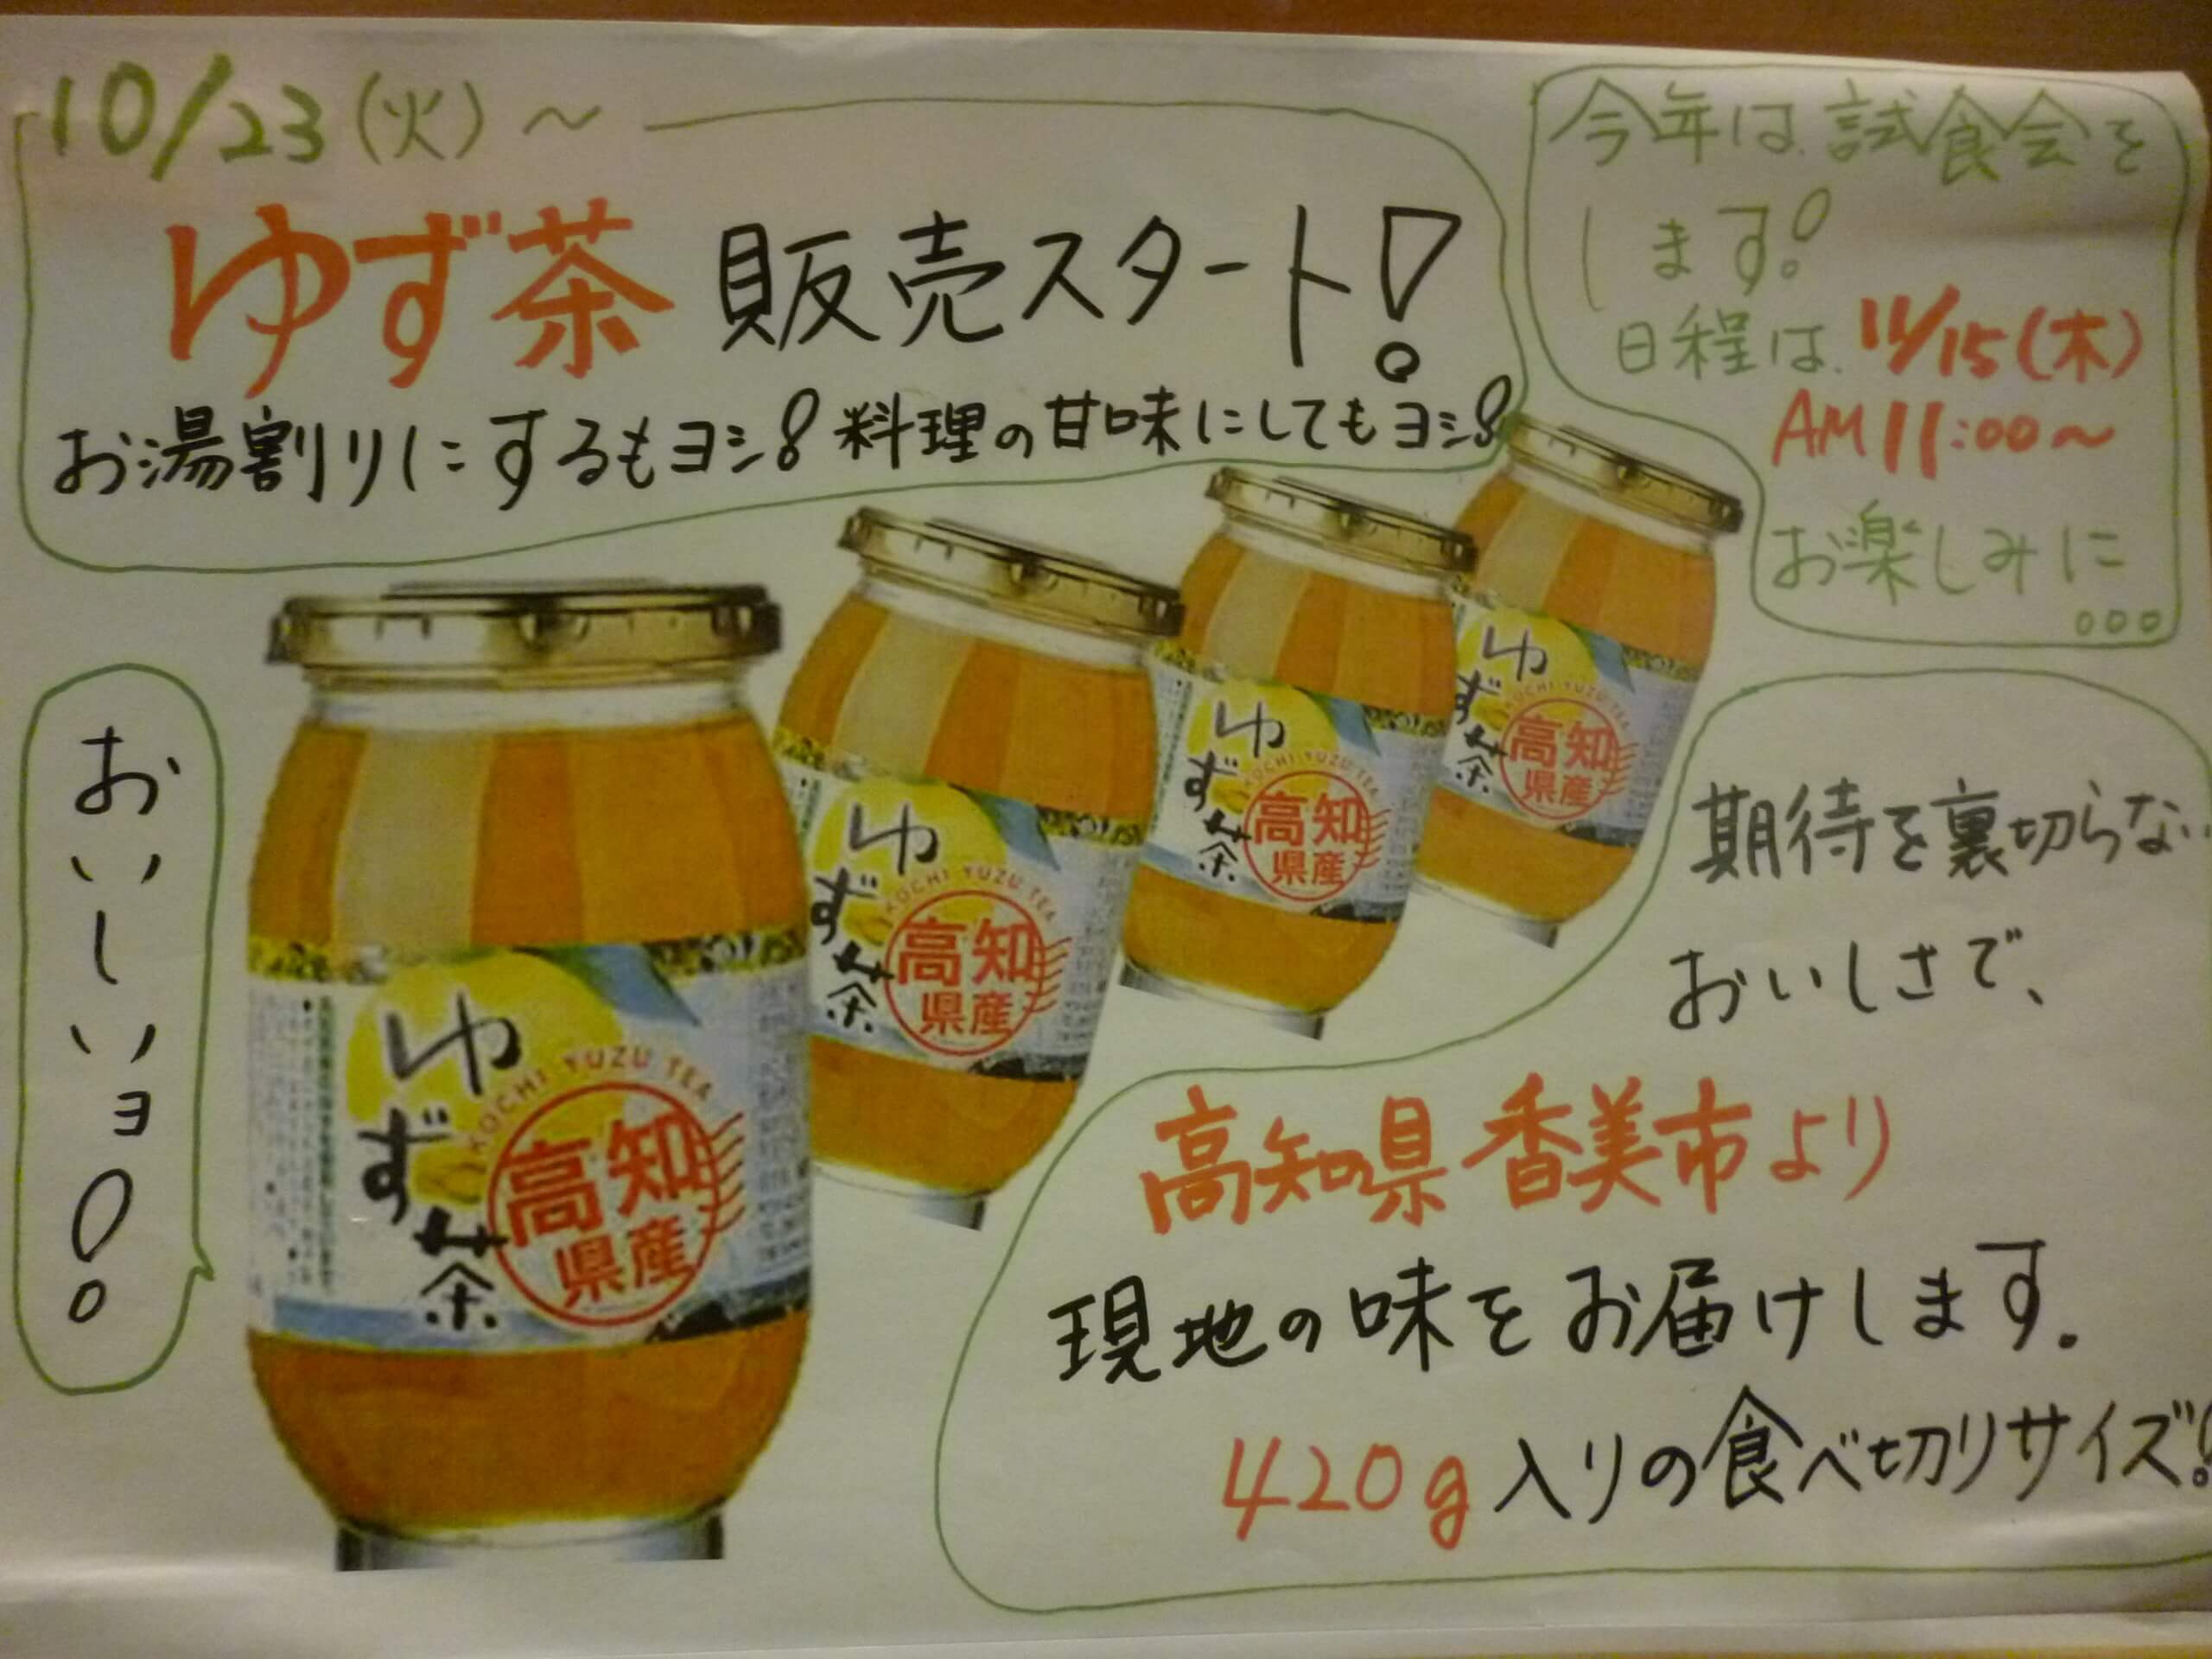 10/23(火)～
ゆず茶 販売スタート!
お湯割りにするもヨシ!料理の甘味にしてもヨシ!
今年は試食会を
します!
日程は 11/15(木)
AM 11:00～
お楽しみに
...
おいしいヨ!
ゆず茶
KOCHI YUZU TEA
高知
県産
ゆず茶
KOCHI YUZU TEA
高知
県産
ゆず茶
KOCHI YUZU TEA
高知
県産
ゆず茶
KOCHI YUZU TEA
高知
県産
期待を裏切らない
おいしさで、
高知県香美市より
現地の味をお届けします。
420g入りの食べ切りサイズ!